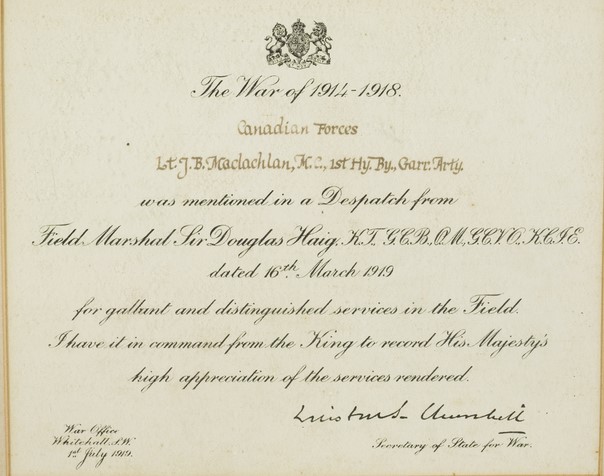 The War of 1914-1918.
Canadian Forces
Lt. J. B. Maclachlan, M.C., 1st Hy. By., Garr. Arty.
was mentioned in a Despatch from
Field Marshal Sir Douglas Haig, K.T., G.C.B., O.M., G.C.V.O., K.C.I.E.
dated 16th March 1919
for gallant and distinguished services in the Field.
I have it in command from the King to record His Majesty's
high appreciation of the services rendered.
Winston S. Churchill
War Office
Whitehall, S.W.
1st July 1919.
Secretary of State for War.